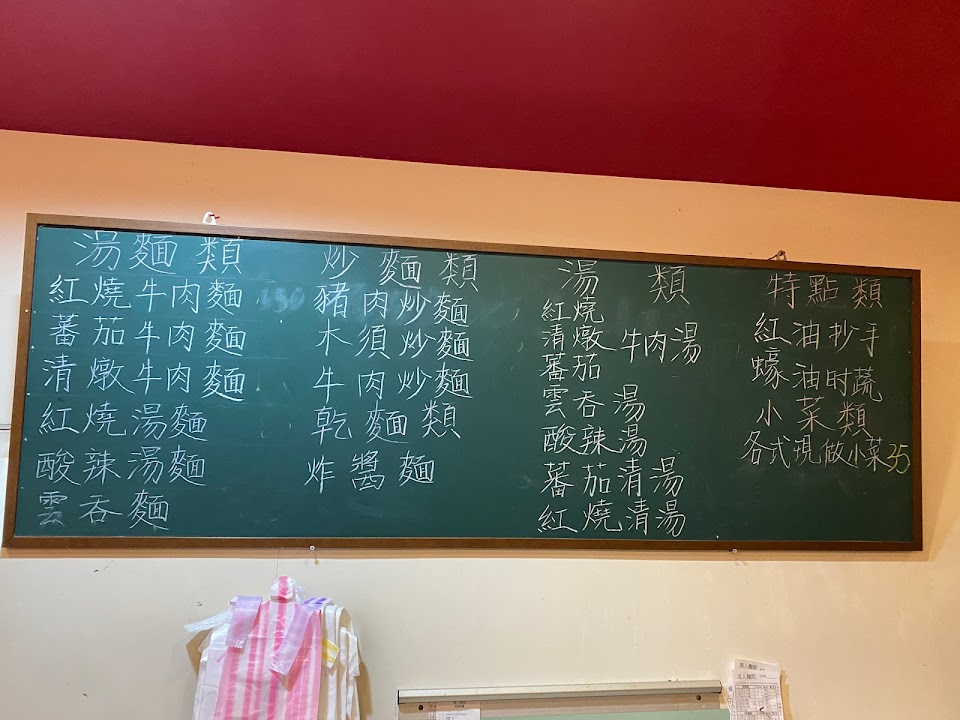 湯麵類
紅燒牛肉麵
蕃茄牛肉麵
清燉牛肉麵
紅燒湯麵
酸辣湯麵
雲吞麵
炒麵類
豬肉炒麵
木須炒麵
牛肉炒麵
乾麵類
炸醬麵
湯類
紅燒
清燉 牛肉湯
蕃茄
雲吞湯
酸辣湯
蕃茄清湯
紅燒清湯
特點類
紅油抄手
蠔油时蔬
小菜類
各式現做小菜35